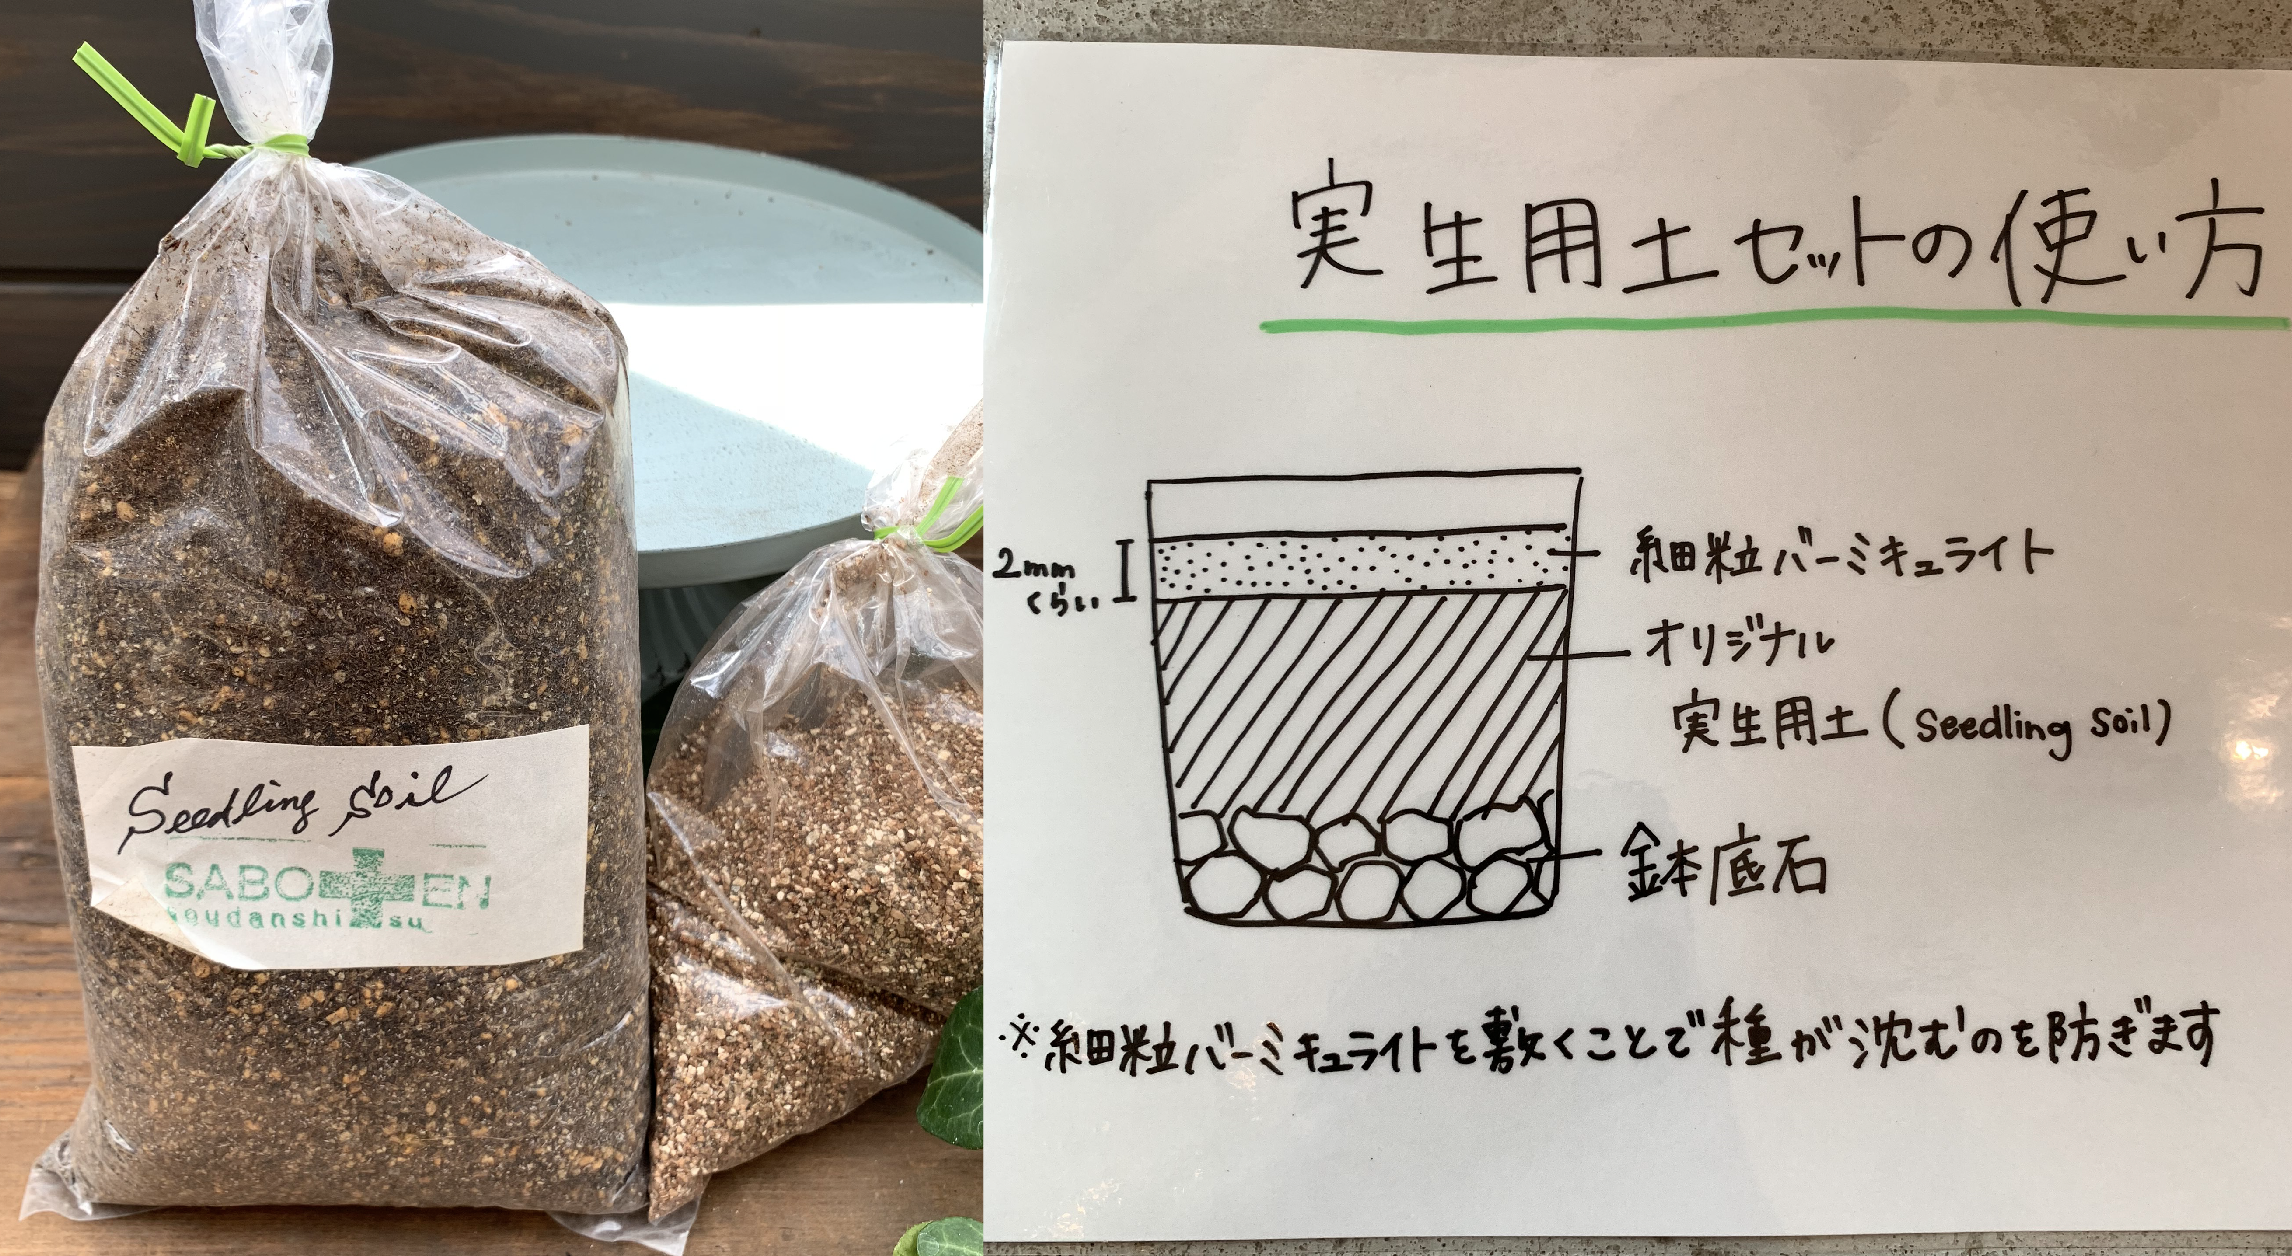 Seedling Soil
SABOTEN
soudanshitsu
実生用土セットの使い方
2mm
くらい
細粒バーミキュライト
オリジナル
実生用土(Seedling Soil)
鉢底石
※細粒バーミキュライトを敷くことで種が沈むのを防ぎます